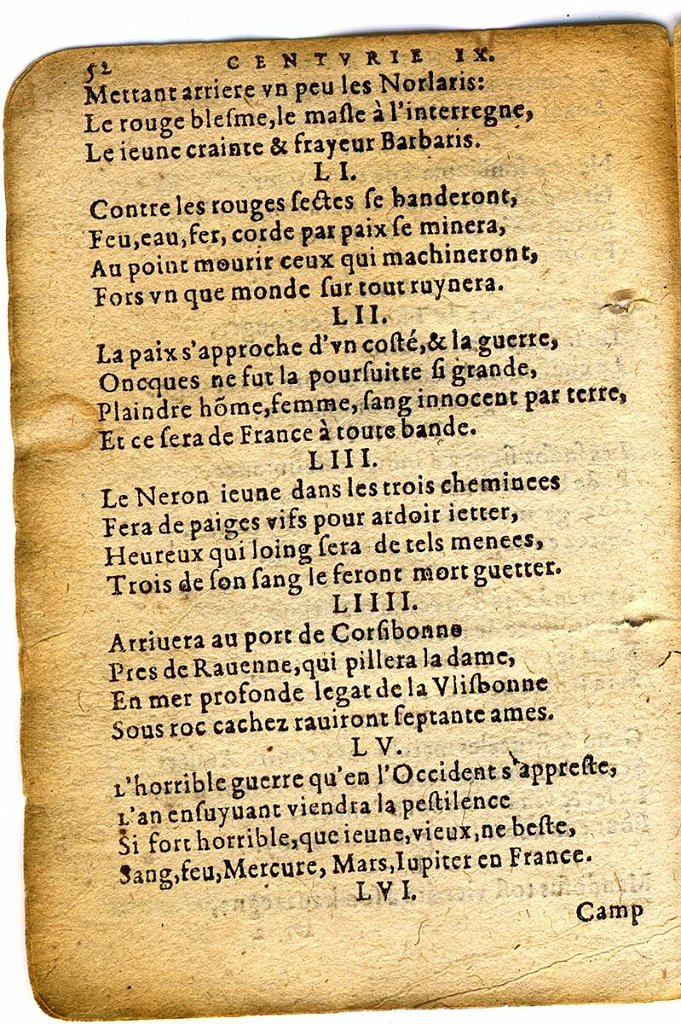 52 CENTVRIE IX.
Mettant arriere vn peu les Norlaris:
Le rouge bleſme,le maſle à l'interregne,
Le ieune crainte & frayeur Barbaris.
LI.
Contre les rouges ſectes ſe banderont,
Feu,eau,fer, corde par paix ſe minera,
Au point mourir ceux qui machineront,
Fors vn que monde ſur tout ruynera.
LII.
La paix s'approche d'vn coſté,& la guerre,
Oncques ne fut la pourſuitte ſi grande,
Plaindre hõme,femme, ſang innocent par terre,
Et ce ſera de France à toute bande.
LIII.
Le Neron ieune dans les trois cheminees
Fera de paiges vifs pour ardoir ietter,
Heureux qui loing ſera de tels menees,
Trois de ſon ſang le feront mort guetter.
LIIII.
Arriuera au port de Corſibonne
Pres de Rauenne,qui pillera la dame,
En mer profonde legat de la Vliſbonne
Sous roc cachez rauiront ſeptante ames.
LV.
L'horrible guerre qu'en l'Occident s'appreſte,
L'an enſuyuant viendra la peſtilence
Si fort horrible,que ieune,vieux,ne beſte,
Sang,feu,Mercure, Mars,Iupiter en France.
LVI.
Camp